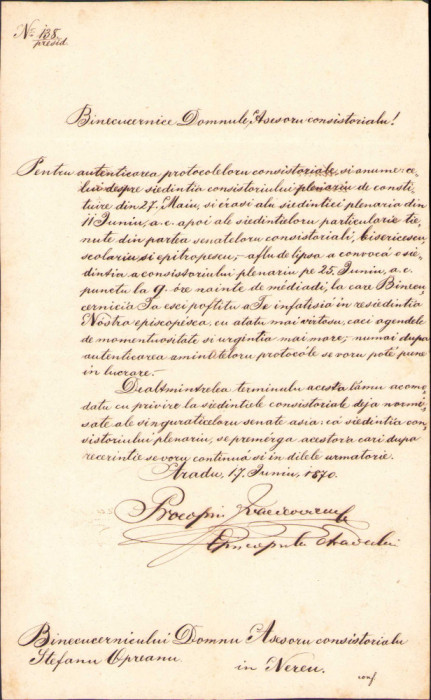 Nr. 138
presid.
Binecucernice Domnule Asesoru consistorialu!
Pentru autenticarea protocoleloru consistoriale, si anume: ce-
lui despre siedintia consistoriului plenariu de consti-
tuire din 27. Maiu, si érasi alu siedintiei plenaria din
11 Juniu, a. c. apoi ale siedintieloru particularie tie-
nute din partea senateloru consistoriali, bisericescu,
scolariu si epitropescu,- aflu de lipsa a convocá o sie-
dintia a consistoriului plenariu pe 25. Juniu, a. c.
punctu la 9. óre nainte de médiadi, la care Binecu-
cernicia Ta esci poftitu a Te infatisiá in residintia
Nostra episcopésca, cu atatu mai vîrtosu, caci agendele
de momentuositate si urgintia mai mare,- numai dupa
autenticarea amintiteloru protocóle se voru poté pune
in lucrare.-
Dealtmintrelea terminulu acesta l'amu acomo-
datu cu privire la siedintiele consistoriale deja normi-
sate ale singuraticeloru senate asia: cá siedintia con-
sistoriului plenariu, se premérga acestora cari dupa
recerintie se voru continuá si in dilele urmatorie.
Aradu, 17. Juniu, 1870.
Procopiu Ivacicovici
Episcopulu Aradului
Binecucernicului Domnu Asesoru consistorialu
Stefanu Opreanu.
in Nereu.